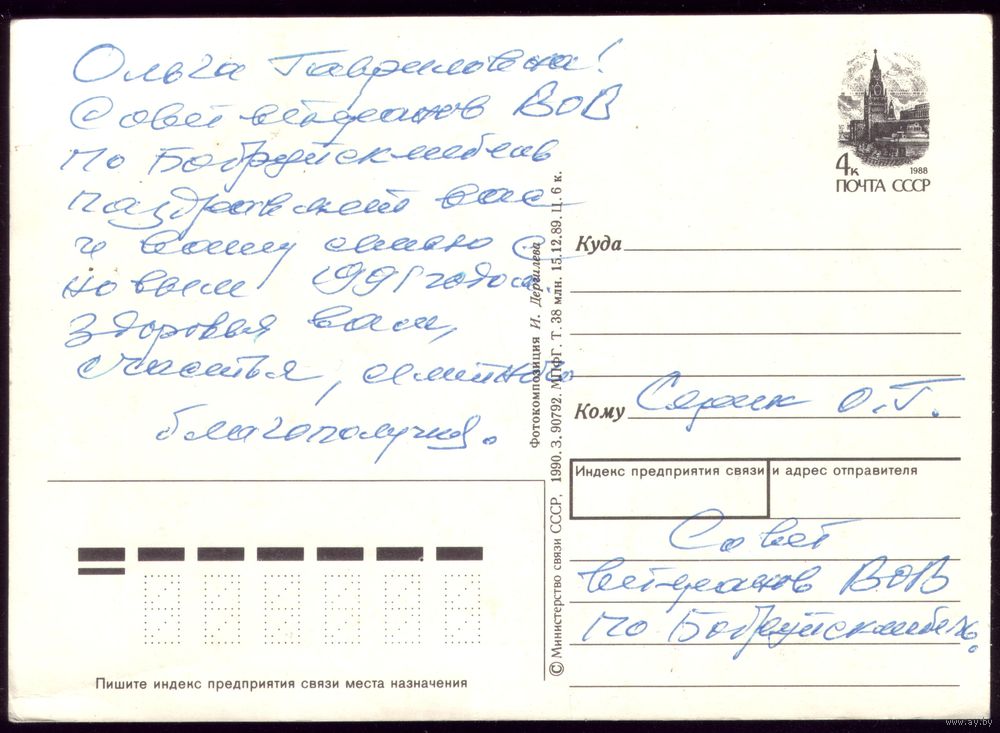 Ольга Гавриловна!
Совет ветеранов ВОВ
ПО Бобруйскмебель
поздравляет вас
и вашу семью с
новым 1991 годом.
Здоровья вам,
счастья, семейного
благополучия.
4к
1988
ПОЧТА СССР
Куда
Кому Серик О.Г.
Индекс предприятия связи и адрес отправителя
Совет
ветеранов ВОВ
ПО Бобруйскмебель.
Фотокомпозиция И. Дергилева
© Министерство связи СССР. 1990. З. 90792. МПФГ. Т. 38 млн. 15.12.89. Ц. 6 к.
Пишите индекс предприятия связи места назначения
www.ay.by